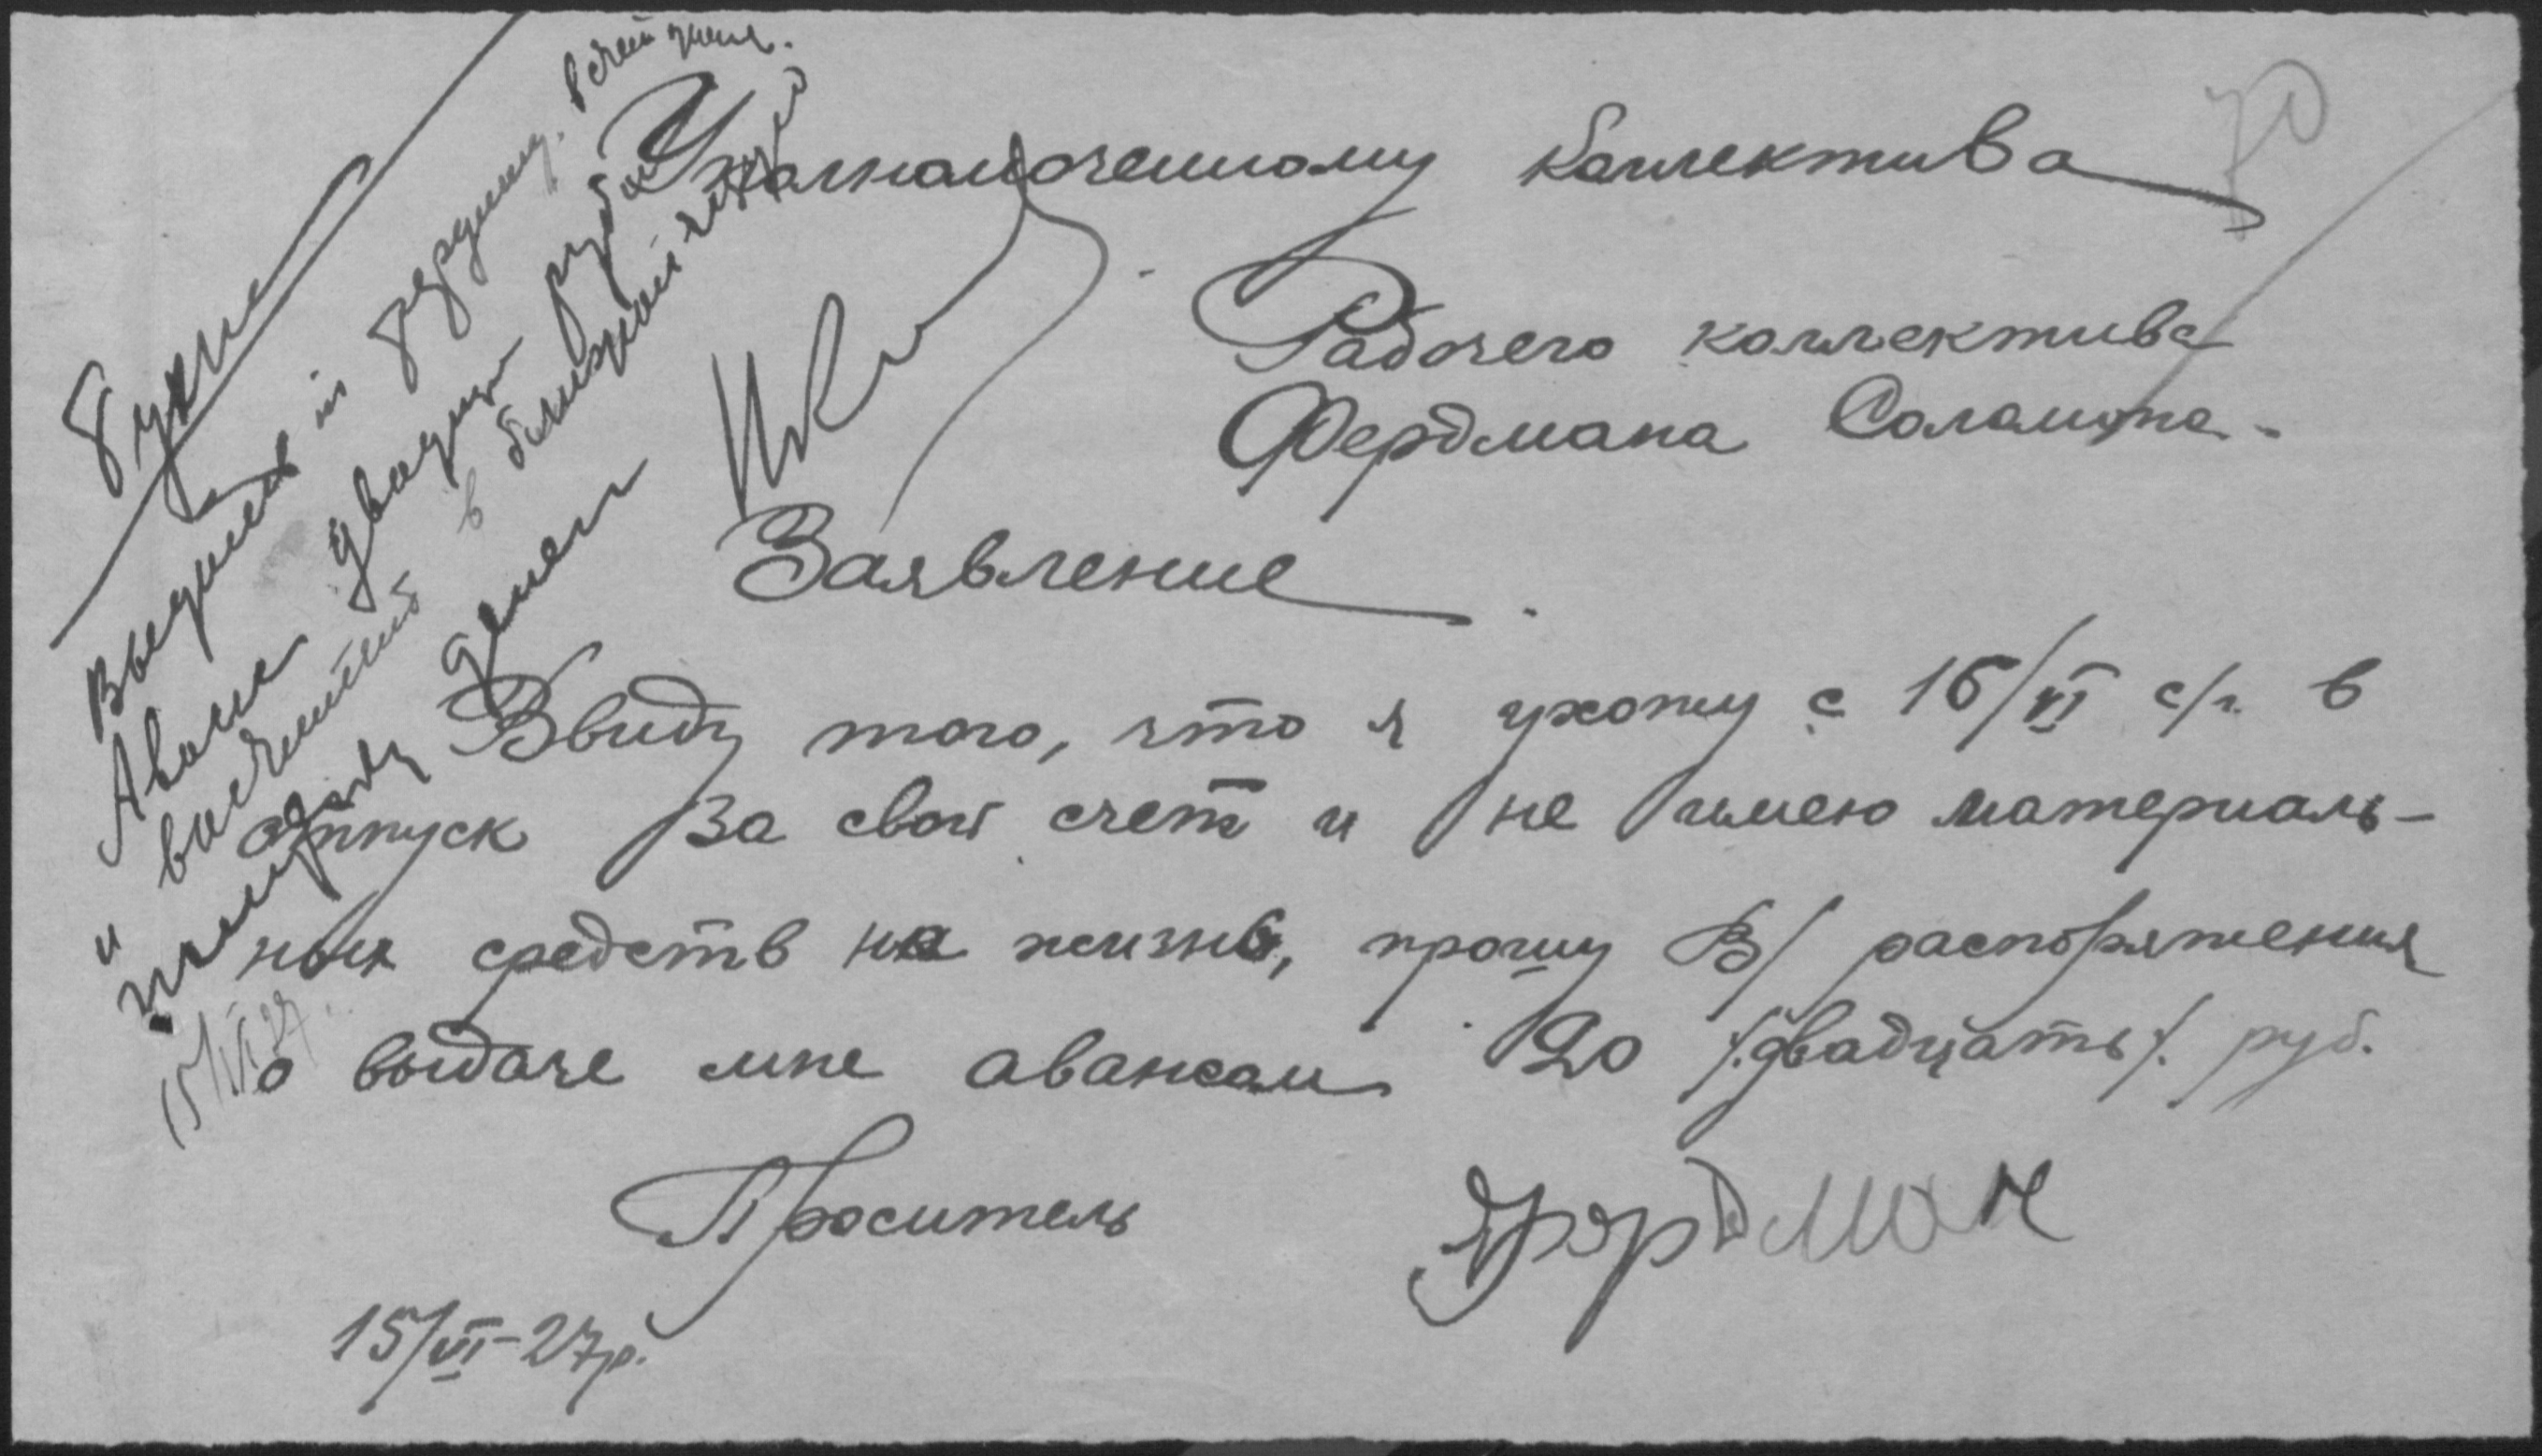 70
Уполномоченному коллектива
Рабочего коллектива
Фердмана Соломона.
Заявление.
Ввиду того, что я ухожу с 16/VI с/г. в
отпуск за свой счет и не имею материаль-
ных средств на жизнь, прошу В/ распоряжения
о выдаче мне авансом 20 /:двадцать:/ руб.
Проситель Фердман
15/VI-27р.
Выдать
Аванс двадцать рублей
и высчитать в ближайшую
денег
15/VI 27.